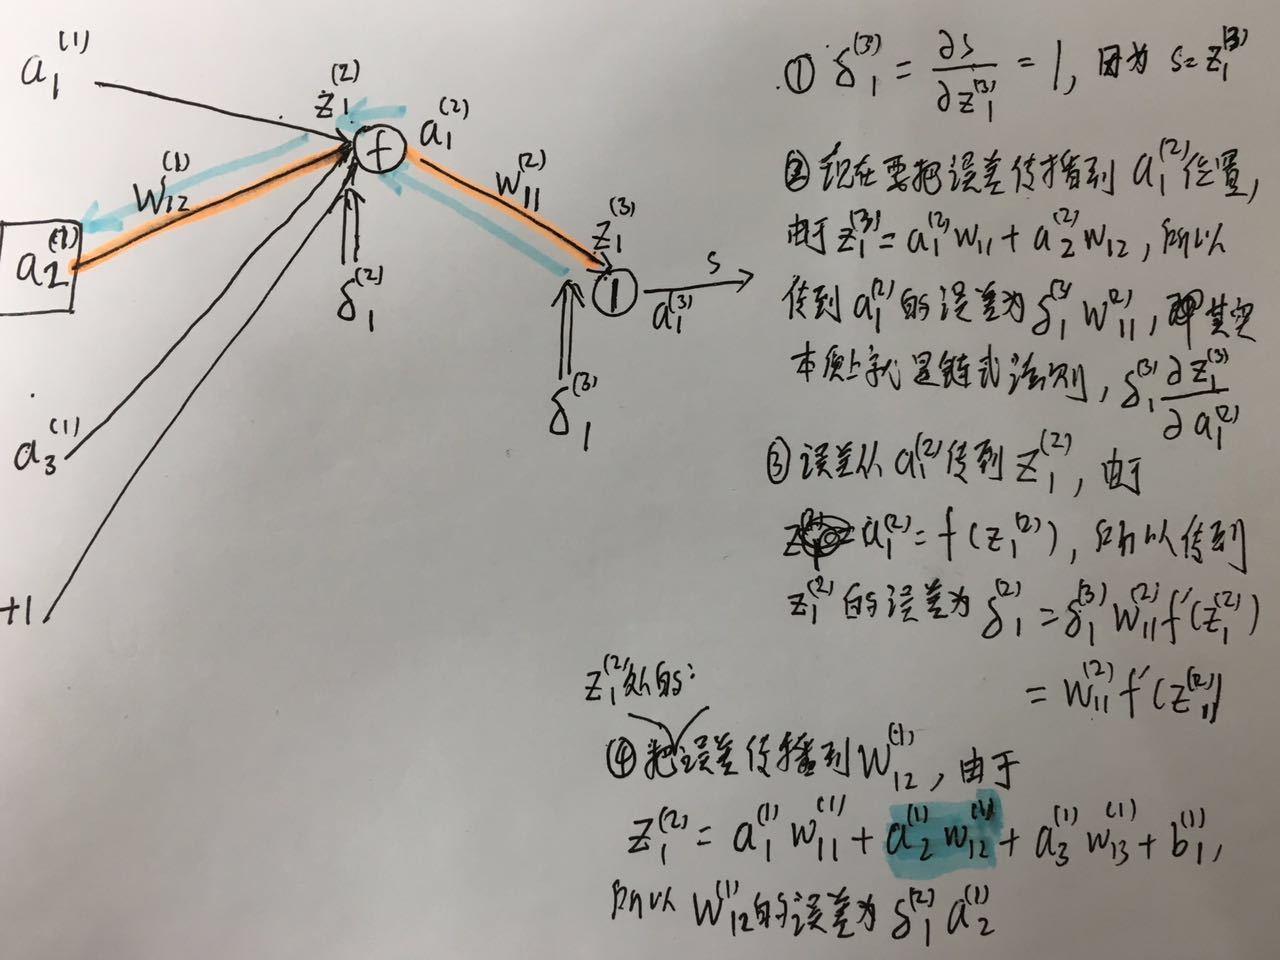 a₁⁽¹⁾
z₁⁽²⁾
f
a₁⁽²⁾
W₁₂⁽¹⁾
W₁₁⁽²⁾
a₂⁽¹⁾
z₁⁽³⁾
δ₁⁽²⁾
1
s
a₁⁽³⁾
δ₁⁽³⁾
a₃⁽¹⁾
+1
① δ₁⁽³⁾ = ∂s/∂z₁⁽³⁾ = 1, 因为 s = z₁⁽³⁾
② 现在要把误差传播到 a₁⁽²⁾ 位置,
由于 z₁⁽³⁾ = a₁⁽²⁾ w₁₁ + a₂⁽²⁾ w₁₂, 所以
传到 a₁⁽²⁾ 的误差为 δ₁⁽³⁾ W₁₁⁽²⁾, 其实
本质上就是链式法则, δ₁⁽³⁾ ∂z₁⁽³⁾/∂a₁⁽²⁾
③ 误差从 a₁⁽²⁾ 传到 z₁⁽²⁾, 由于
a₁⁽²⁾ = f(z₁⁽²⁾), 所以传到
z₁⁽²⁾ 的误差为 δ₁⁽²⁾ = δ₁⁽³⁾ W₁₁⁽²⁾ f′(z₁⁽²⁾)
= W₁₁⁽²⁾ f′(z₁⁽²⁾)
z₁⁽²⁾处的:
④ 把误差传播到 W₁₂⁽¹⁾, 由于
z₁⁽²⁾ = a₁⁽¹⁾ w₁₁⁽¹⁾ + a₂⁽¹⁾ w₁₂⁽¹⁾ + a₃⁽¹⁾ w₁₃⁽¹⁾ + b₁⁽¹⁾,
所以 W₁₂⁽¹⁾ 的误差为 δ₁⁽²⁾ a₂⁽¹⁾